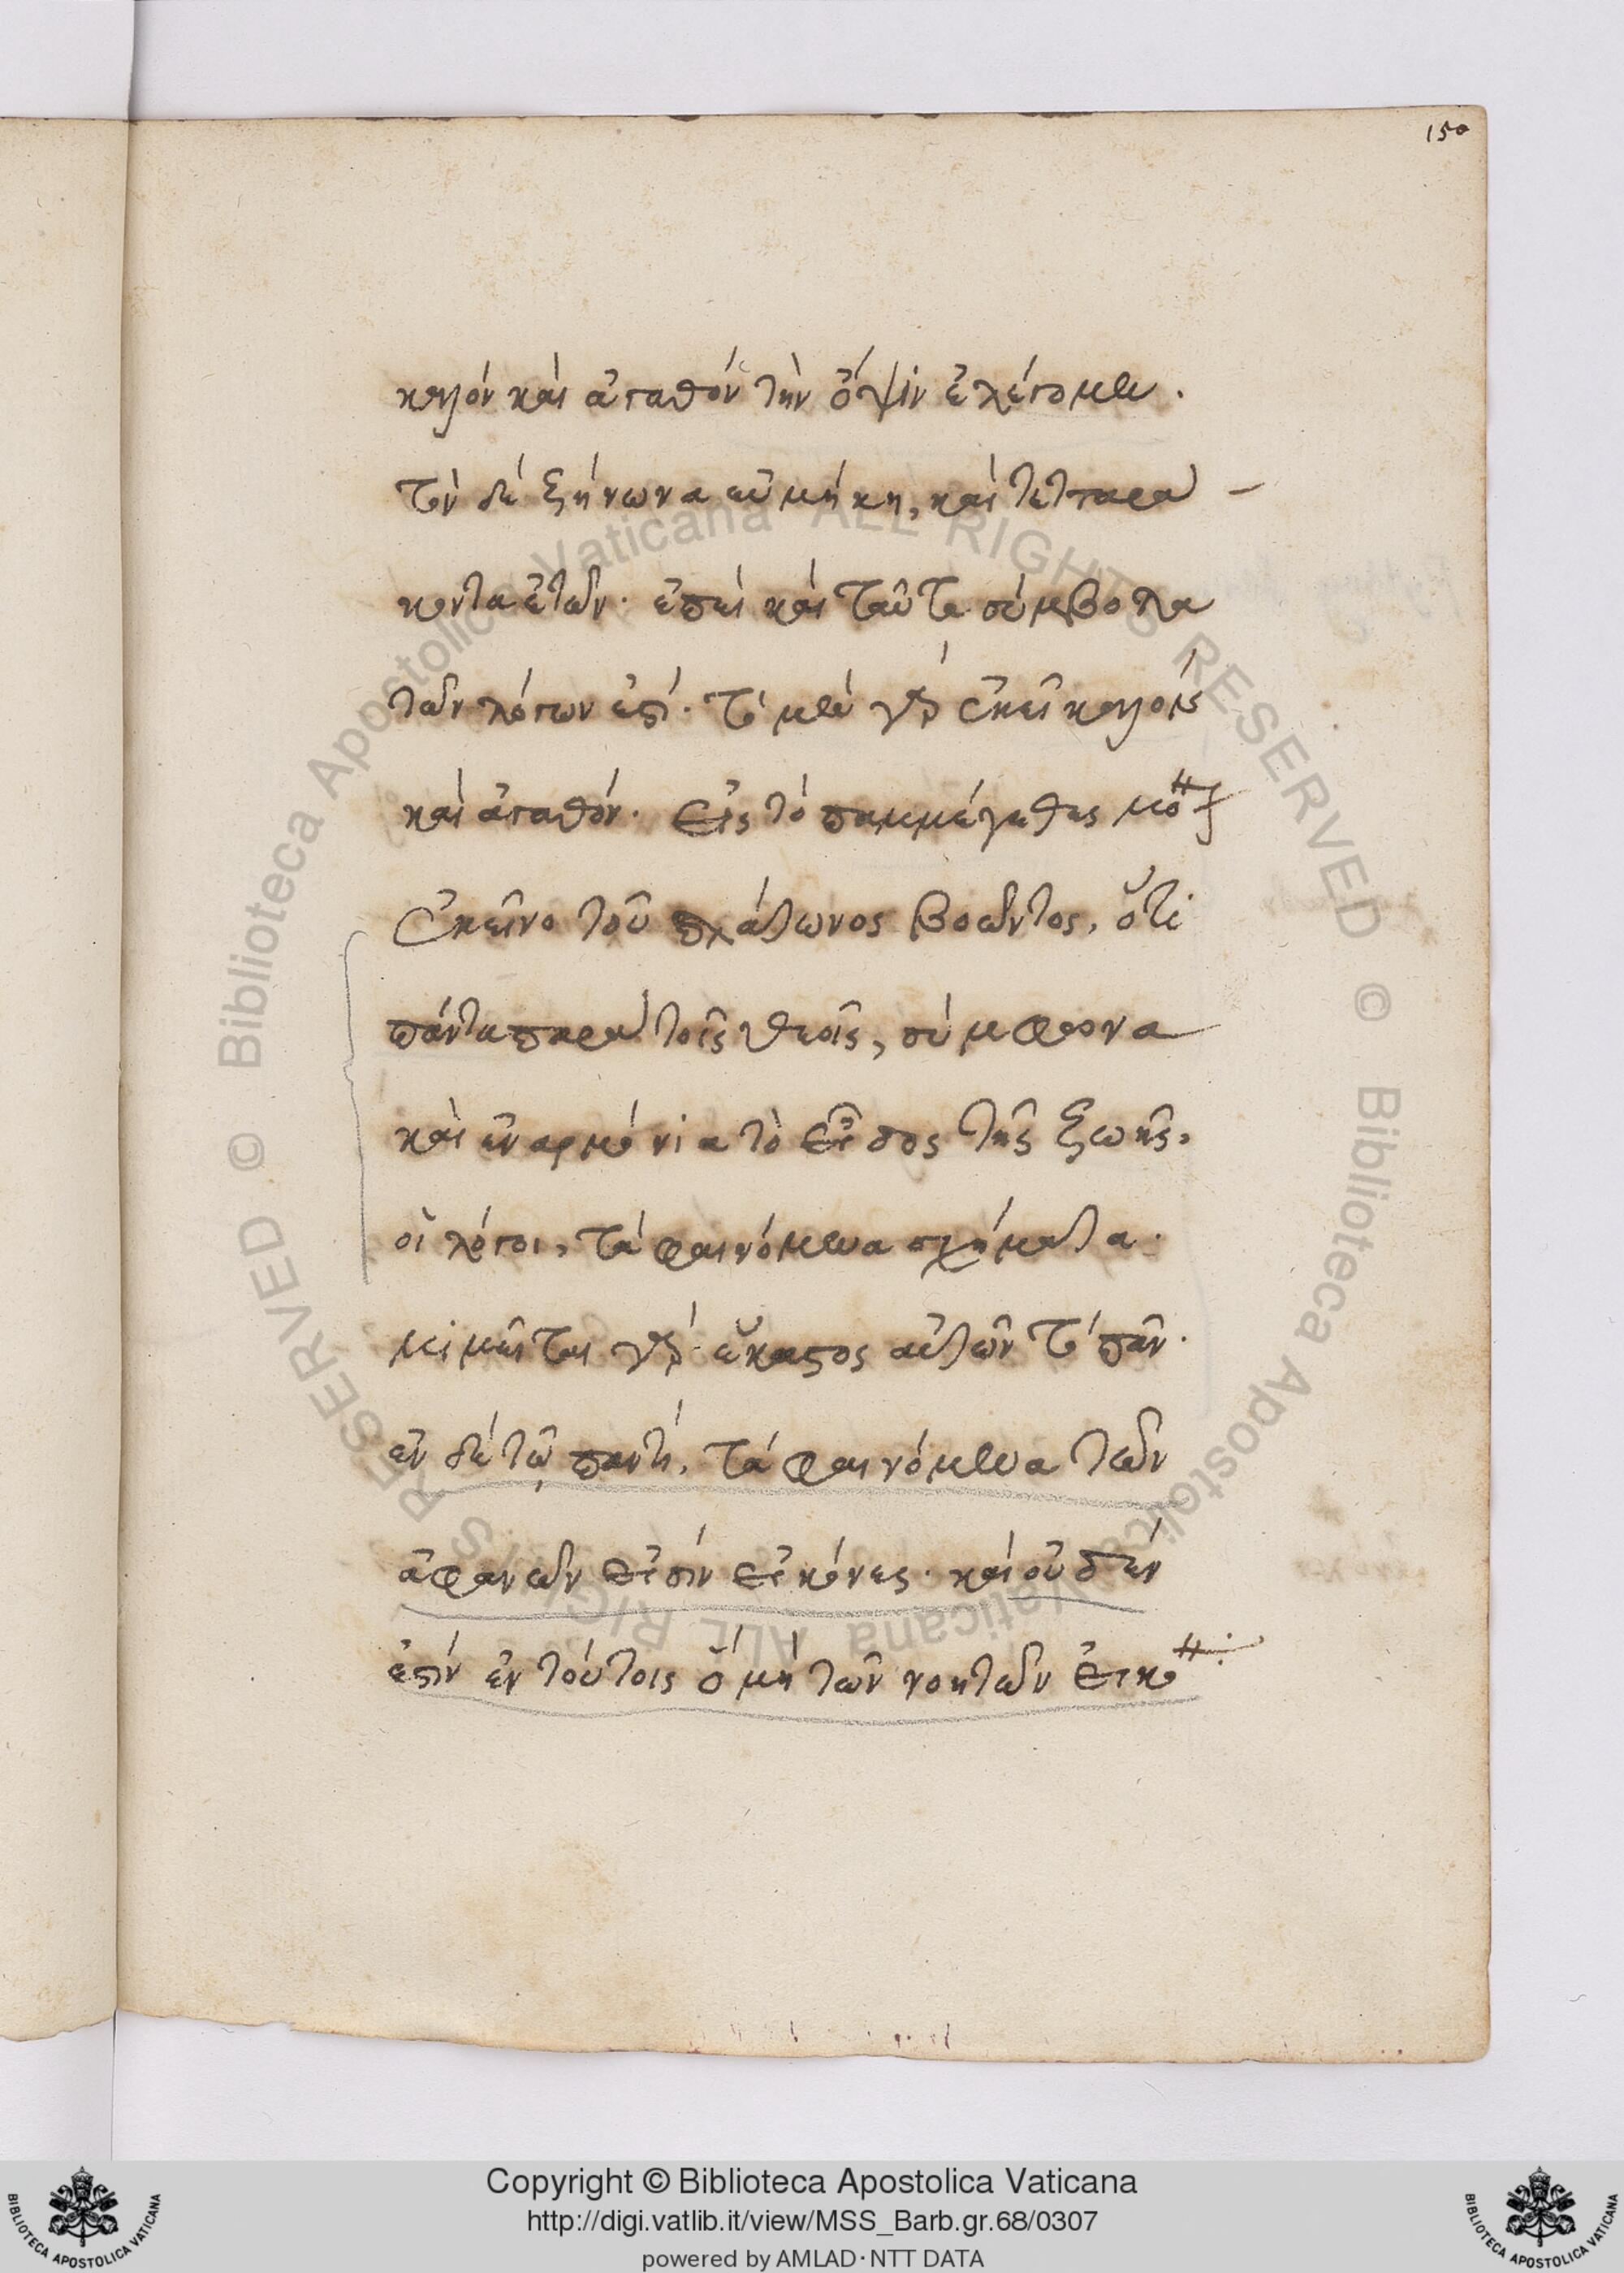 150
καλὸν καὶ ἀγαθὸν τὴν ὄψιν ἐλέγομεν.
τὸν δὲ ζήνωνα εὐμήκη, καὶ τετταρα-
κονταετῶν. ἐπεὶ καὶ ταῦτα σύμβολα
τῶν λόγων ἐστί. τὸ μὲν γὰρ ἐκεῖ καλοῖς
καὶ ἀγαθόν. εἰς τὸ παμμέγεθες
ἐκεῖνο τοῦ πλάτωνος βοῶντος, ὅτι
πάντα παρὰ τοῖς θεοῖς, σύμφρονα
καὶ ἐναρμόνια τὸ εἶδος τῆς ζωῆς.
οἱ λόγοι, τὰ φαινόμενα σχήματα.
μιμεῖται γὰρ ἕκαστος αὐτῶν τὸ πᾶν.
ἐν δὲ τῷ παντὶ, τὰ φαινόμενα τῶν
ἀφανῶν εἰσὶν εἰκόνες. καὶ οὐδέν
ἐστὶν ἐν τούτοις ὃ μὴ τῶν νοητῶν
Copyright © Biblioteca Apostolica Vaticana
http://digi.vatlib.it/view/MSS_Barb.gr.68/0307
powered by AMLAD·NTT DATA
BIBLIOTECA APOSTOLICA VATICANA
BIBLIOTECA APOSTOLICA VATICANA
© Biblioteca Apostolica Vaticana ALL RIGHTS RESERVED
© Biblioteca Apostolica Vaticana ALL RIGHTS RESERVED